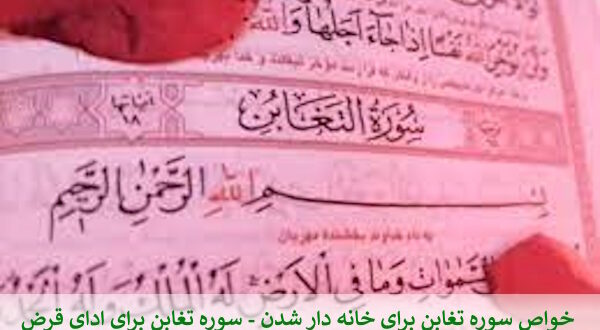 وَلَن يُؤَخِّرَ اللَّهُ نَفْسًا إِذَا جَاءَ أَجَلُهَا وَاللَّهُ
آیاتها ۱۸
سُورَةُ التَّغَابُنِ
بِسْمِ اللَّهِ الرَّحْمَٰنِ الرَّحِيمِ ١
به نام خداوند بخشنده مهربان
السَّمَاوَاتِ وَمَا فِي الْأَرْضِ لَهُ الْمُلْكُ وَلَهُ
خواص سوره تغابن برای خانه دار شدن - سوره تغابن برای ادای قرض